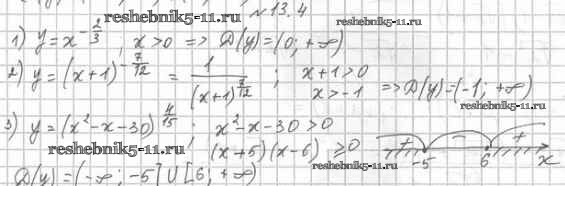 reshebnik5-11.ru №13.4 reshebnik5-11.ru
1) y=x^{-2/3}, x>0 => D(y)=(0; +∞)
2) y=(x+1)^{-7/12} = 1/(x+1)^{7/12} ; x+1>0
x>-1 => D(y)=(-1; +∞)
reshebnik5-11.ru reshebnik5-11.ru
3) y=(x²-x-30)^{4/15} ; x²-x-30>0
reshebnik5-11.ru (x+5)(x-6) ≥0 + -5 - 6 + x
D(y)=(-∞; -5]U[6; +∞) reshebnik5-11.ru